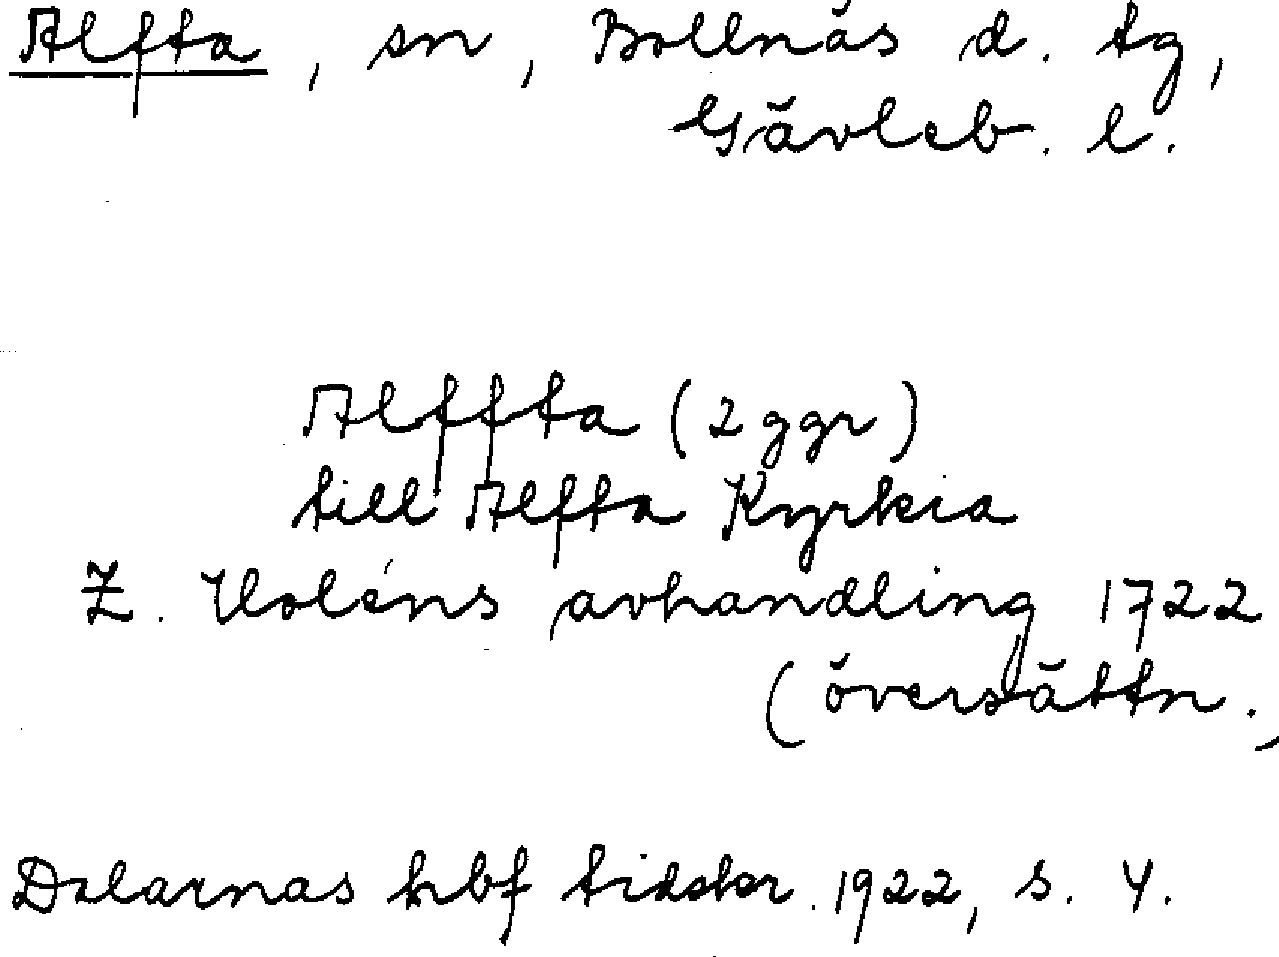 Alfta, sn, Bollnäs d. tg,
Gävleb. l.
Alffta (2 ggr)
till Alfta Kyrkia
Z. Holéns avhandling 1722
(översättn.,
Dalarnas hbf tidskr. 1922, s. 4.